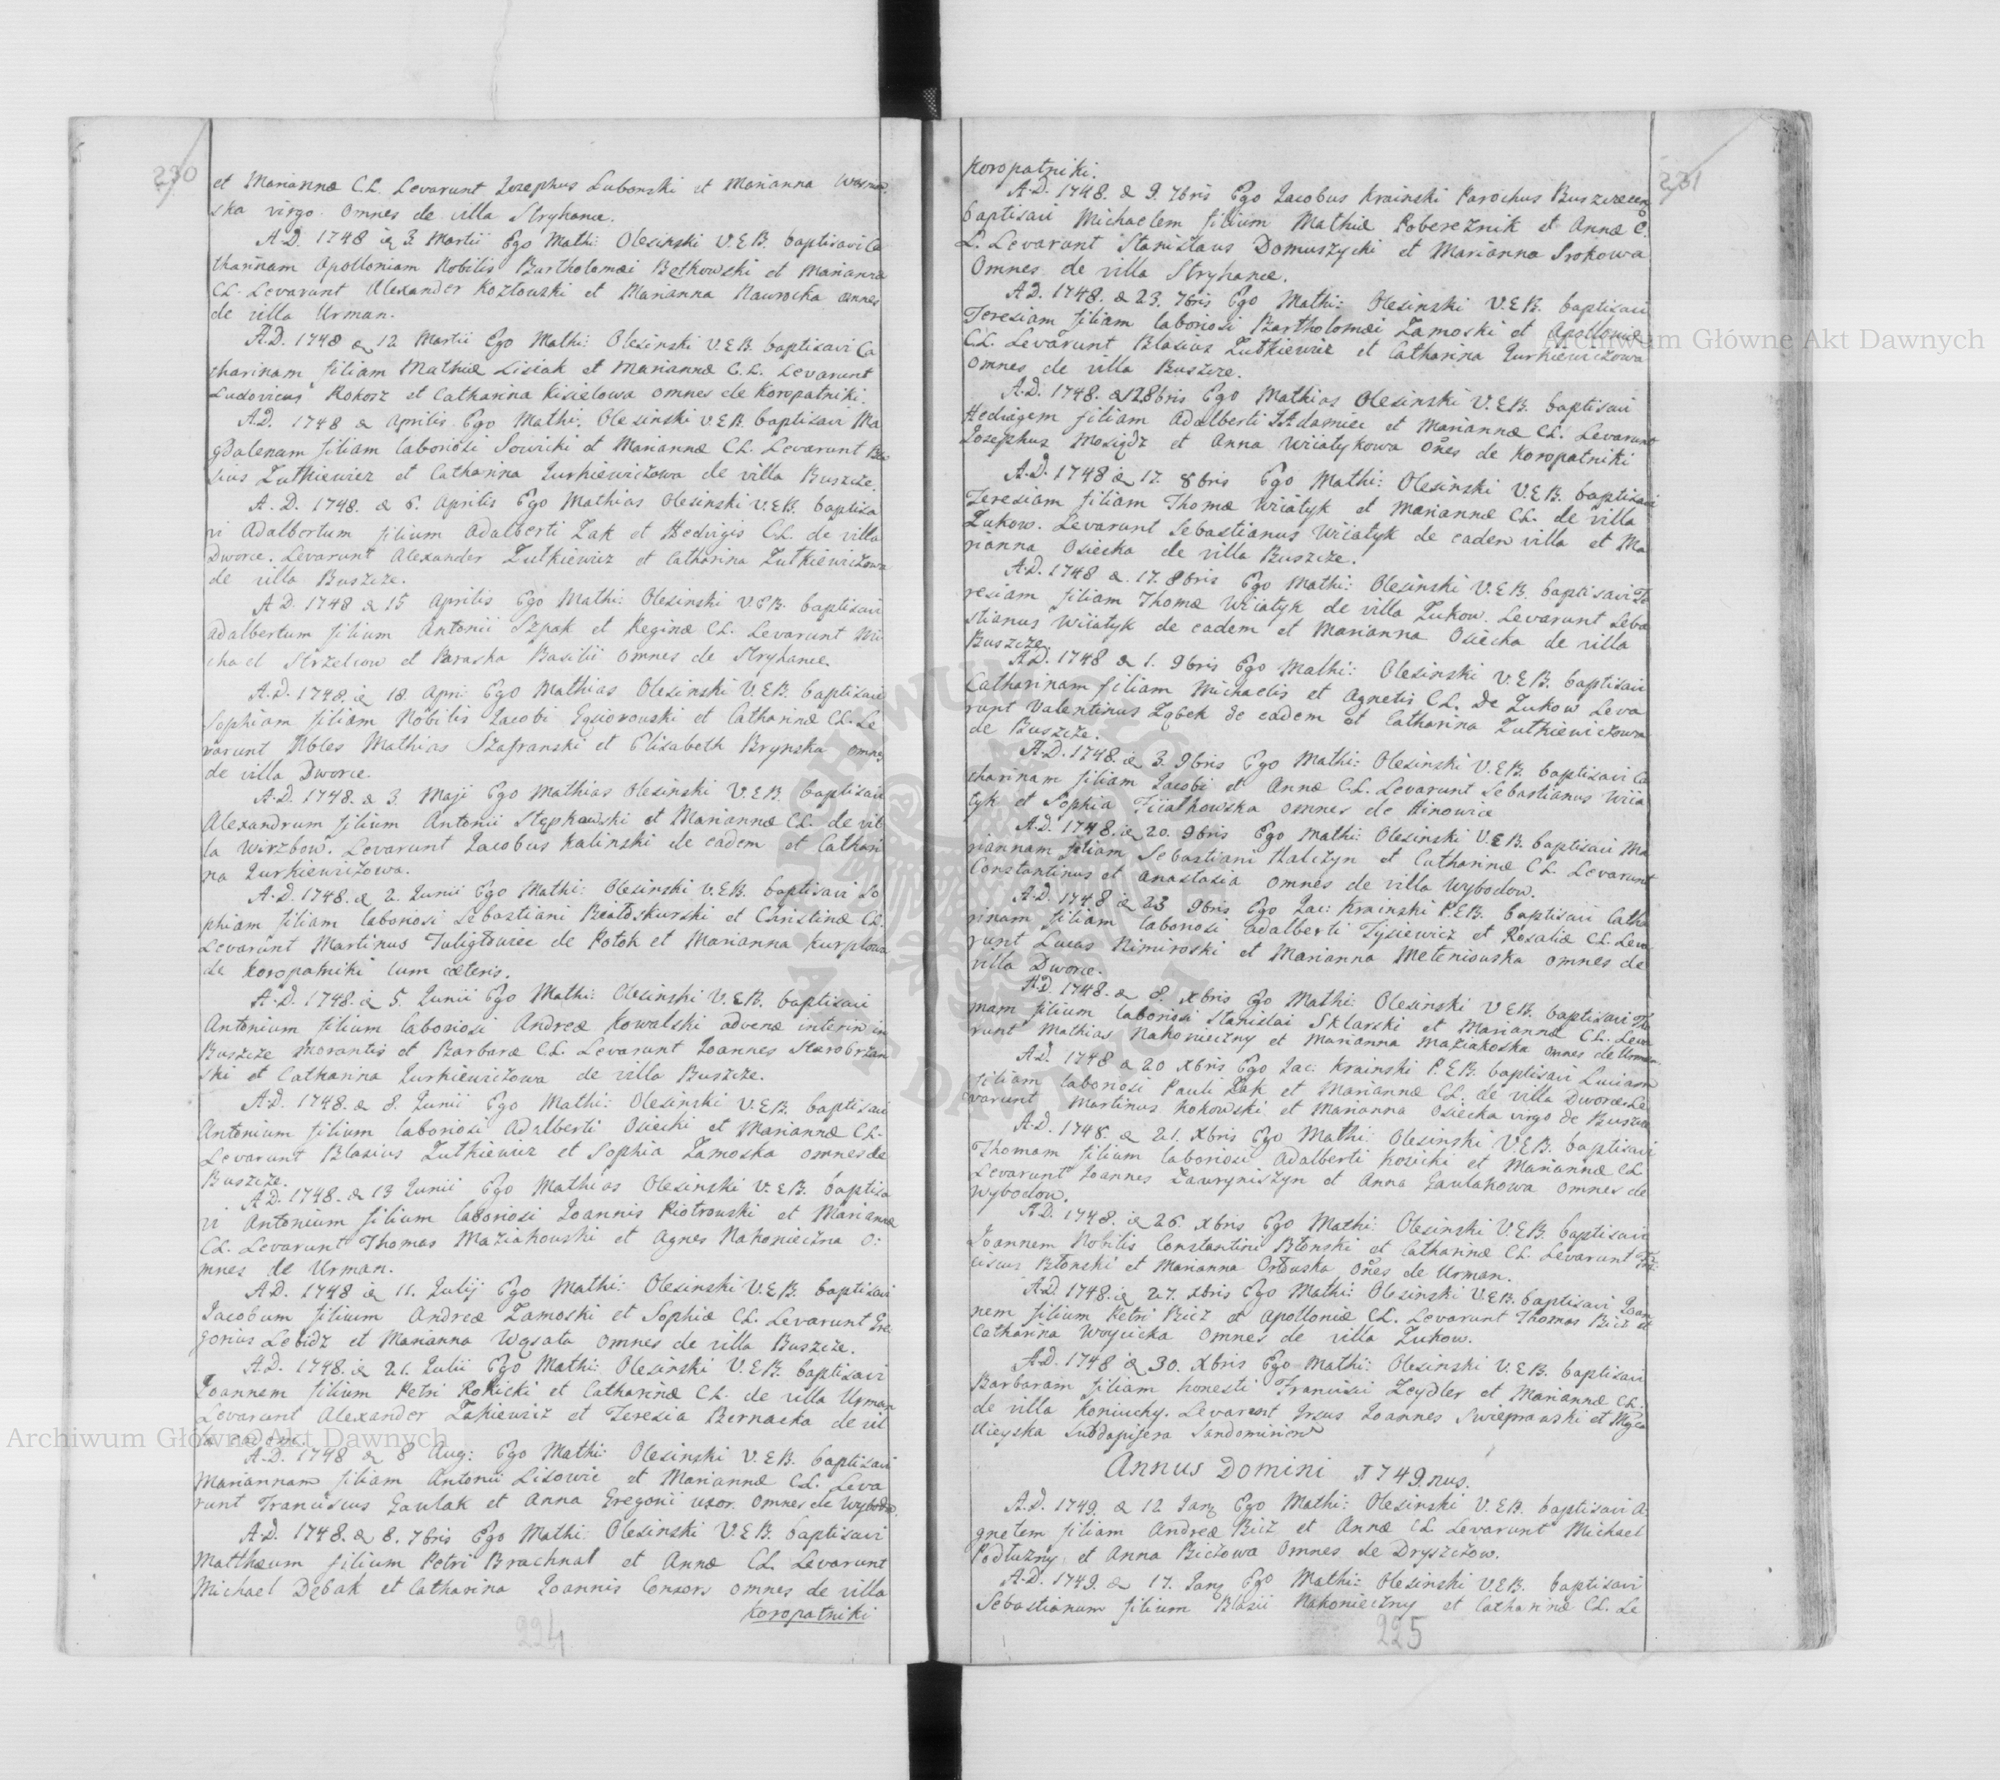 230
et Mariannæ C.L. Levarunt Josephus Lubonski et Marianna
ska virgo. Omnes de villa Stryhance.
A.D. 1748 die 3 Martii Ego Mathi: Olesinski V.E.B. baptisavi Ca
tharinam Apolloniam Nobilis Bartholomæi Bętkowski et Marianna
CL. Levarunt Alexander Kozłowski et Marianna Nawrocka omnes
de villa Urman.
A.D. 1748 die 12 Martii Ego Mathi: Olesinski V.E.B. baptisavi Ca
tharinam filiam Mathiæ Lisiak et Mariannæ C.L. Levarunt
Ludovicus Rokosz et Catharina Kisielowa omnes de Koropatniki.
A.D. 1748 die Aprilis Ego Mathi: Olesinski V.E.B. baptisavi Ma
gdalenam filiam laboriosi Sowicki et Mariannæ CL. Levarunt Bla
sius Zutkiewicz et Catharina Jurkiewiczowa de villa Buszcze.
A.D. 1748. die 6. Aprilis Ego Mathias Olesinski V.E.B. baptisa
vi Adalbertum filium Adalberti Żak et Hedvigis C.L. de villa
Dworce. Levarunt Alexander Zutkiewicz et Catharina Zutkiewiczowa
de villa Buszcze.
A.D. 1748 die 15 Aprilis Ego Mathi: Olesinski V.E.B. baptisavi
Adalbertum filium Antonii Szpak et Reginæ CL. Levarunt Mi
chael Strzelcow et Paraska Basilii omnes de Stryhance.
A.D. 1748. die 18 Apri: Ego Mathias Olesinski V.E.B. baptisavi
Sophiam filiam Nobilis Jacobi Gąsiorowski et Catharinæ CL. Le
varunt Nbles Mathias Szafranski et Elisabeth Brynska omnes
de villa Dworce.
A.D. 1748. die 3. Maji Ego Mathias Olesinski V.E.B. baptisavi
Alexandrum filium Antonii Stępkowski et Mariannæ CL. de vil
la Wirzbow. Levarunt Jacobus Kalinski de eadem et Cathari
na Jurkiewiczowa.
A.D. 1748. die 2. Junii Ego Mathi: Olesinski V.E.B. baptisavi So
phiam filiam laboriosi Sebastiani Białoskurski et Christinæ CL.
Levarunt Martinus Tuligłowicz de Potok et Marianna Kurpłowa
de Koropatniki cum cæteris.
A.D. 1748. die 5. Junii Ego Mathi: Olesinski V.E.B. baptisavi
Antonium filium laboriosi Andreæ Kowalski advenæ interim in
Buszcze morantis et Barbaræ CL. Levarunt Joannes Starobrzan
ski et Catharina Jurkiewiczowa de villa Buszcze.
A.D. 1748. die 8. Junii Ego Mathi: Olesinski V.E.B. baptisavi
Antonium filium laboriosi Adalberti Osiecki et Mariannæ CL.
Levarunt Blasius Zutkiewicz et Sophia Zamoska omnes de
Buszcze.
A.D. 1748. die 13 Junii Ego Mathias Olesinski V.E.B. baptisa
vi Antonium filium laboriosi Joannis Piotrowski et Mariannæ
CL. Levarunt Thomas Maziakowski et Agnes Nakonieczna o:
mnes de Urman.
A.D. 1748 die 11. Julij Ego Mathi: Olesinski V.E.B. baptisavi
Jacobum filium Andreæ Zamoski et Sophiæ CL. Levarunt Gre
gorius Lebidz et Marianna Wąsata omnes de villa Buszcze.
A.D. 1748. die 21. Julii Ego Mathi: Olesinski V.E.B. baptisavi
Joannem filium Petri Rokicki et Catharinæ CL. de villa Urman
Levarunt Alexander Zakiewicz et Teresia Bernacka de vil
A.D. 1748 die 8 Aug: Ego Mathi: Olesinski V.E.B. baptisavi
Mariannam filiam Antonii Lisowic et Mariannæ CL. Leva
runt Franciscus Gawlak et Anna Gregorii uxor. Omnes de Wybodow.
A.D. 1748. die 8. 7bris Ego Mathi: Olesinski V.E.B. baptisavi
Matthæum filium Petri Brachnal et Annæ CL. Levarunt
Michael Dębak et Catharina Joannis Consors omnes de villa
Koropatniki
224
231
Koropatniki.
A.D. 1748. die 9. 7bris Ego Jacobus Krainski Parochus Buszczecen
baptisavi Michaelem filium Mathiæ Pobereznik et Annæ C.
L. Levarunt Stanislaus Domuszycki et Marianna Srokowa
Omnes de villa Stryhance.
A.D. 1748. die 23. 7bris Ego Mathi: Olesinski V.E.B. baptisavi
Teresiam filiam laboriosi Bartholomæi Zamoski et Apolloniæ
C.L. Levarunt Blasius Zutkiewicz et Catharina Jurkiewiczowa
omnes de villa Buszcze.
A.D. 1748. die 12 8bris Ego Mathias Olesinski V.E.B. baptisavi
Hedvigem filiam Adalberti Adamiec et Mariannæ CL. Levarunt
Josephus Mosiądz et Anna Wiiatykowa oñes de Koropatniki
A.D. 1748 die 17. 8bris Ego Mathi: Olesinski V.E.B. baptisavi
Teresiam filiam Thomæ Wiiatyk et Mariannæ CL. de villa
Zukow. Levarunt Sebastianus Wiiatyk de eadem villa et Ma
rianna Osiecka de villa Buszcze.
A.D. 1748 die 17. 8bris Ego Mathi: Olesinski V.E.B. baptisavi Te
resiam filiam Thomæ Wiiatyk de villa Zukow. Levarunt Seba
stianus Wiiatyk de eadem et Marianna Osiecka de villa
Buszcze.
A.D. 1748 die 1. 9bris Ego Mathi: Olesinski V.E.B. baptisavi
Catharinam filiam Michaelis et Agnetis CL. De Zukow Leva
runt Valentinus Ząbek de eadem et Catharina Zutkiewiczowa
de Buszcze.
A.D. 1748. die 3. 9bris Ego Mathi: Olesinski V.E.B. baptisavi Ca
tharinam filiam Jacobi et Annæ C.L. Levarunt Sebastianus Wiia
tyk et Sophia Fiiałkowska omnes de Hinowice
A.D. 1748. die 20. 9bris Ego Mathi: Olesinski V.E.B. baptisavi Ma
riannam filiam Sebastiani Halczyn et Catharinæ CL. Levarunt
Constantinus et Anastasia omnes de villa Wybodow.
A.D. 1748 die 23 9bris Ego Jac: Krainski P.E.B. baptisavi Catha
rinam filiam laboriosi Adalberti Tysiewicz et Rosaliæ CL. Leva
runt Lucas Nimiroski et Marianna Meteniowska omnes de
villa Dworce.
A.D. 1748. die 8. Xbris Ego Mathi: Olesinski V.E.B. baptisavi Tho
mam filium laboriosi Stanislai Sklarski et Mariannæ CL. Leva
runt Mathias Nakonieczny et Marianna Maziakoska omnes de Urman
A.D. 1748 a 20 Xbris Ego Jac: Krainski P.E.B. baptisavi Luciam
filiam laboriosi Pauli Żak et Mariannæ CL. de villa Dworce Le
varunt Martinus Kokowski et Marianna Osiecka virgo de Buszcze
A.D. 1748. die 21. Xbris Ego Mathi: Olesinski V.E.B. baptisavi
Thomam filium laboriosi Adalberti Kosicki et Mariannæ CL
Levarunt Joannes Ławryniszyn et Anna Gawlakowa omnes de
Wybodow.
A.D. 1748. die 26. Xbris Ego Mathi: Olesinski V.E.B. baptisavi
Joannem Nobilis Constantini Błonski et Catharinæ CL. Levarunt Fra:
ciscus Błonski et Marianna Orłowska oñes de Urman.
A.D. 1748. die 27. Xbris Ego Mathi: Olesinski V.E.B. baptisavi Joan
nem filium Petri Bicz et Apolloniæ CL. Levarunt Thomas Bicz et
Catharina Woycicka omnes de villa Zukow.
A.D. 1748 die 30. Xbris Ego Mathi: Olesinski V.E.B. baptisavi
Barbaram filiam honesti Francisci Zeydler et Mariannæ CL.
de villa Koniuchy. Levarunt Joannes Swieprawski et
Subdapifera
Annus Domini 1749.nus.
A.D. 1749. die 12 Ego Mathi: Olesinski V.E.B. baptisavi A
gnetem filiam Andreæ Bicz et Annæ CL Levarunt Michael
Podłuzny et Anna Biczowa omnes de Dryszczow.
A.D. 1749. die 17. Ego Mathi: Olesinski V.E.B. baptisavi
Sebastianum filium Blasii Nakonieczny et Catharinæ CL. Le
225
Archiwum Główne Akt Dawnych
Archiwum Główne Akt Dawnych